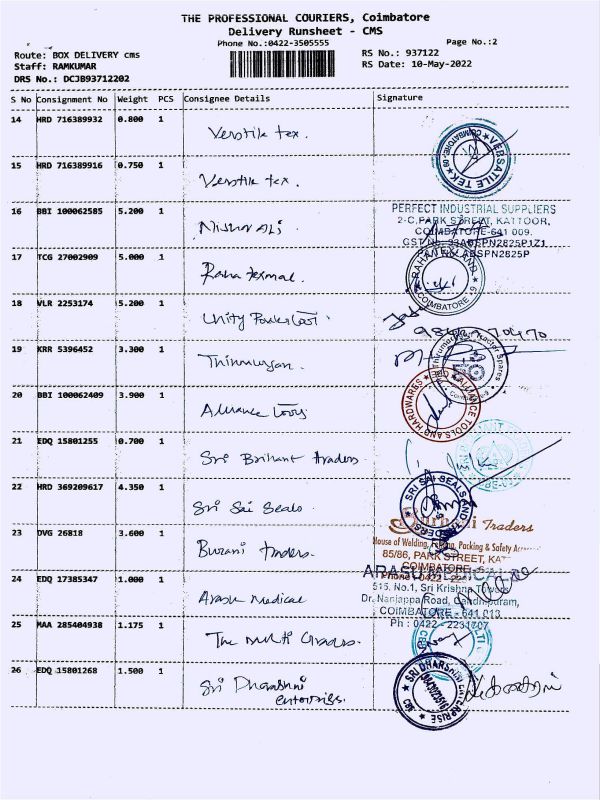 THE PROFESSIONAL COURIERS, Coimbatore
Delivery Runsheet - CMS
Phone No.:0422-3505555
Page No.:2
Route: BOX DELIVERY cms
RS No.: 937122
Staff: RAMKUMAR
RS Date: 10-May-2022
DRS No.: DCJB93712202
S No Consignment No Weight PCS Consignee Details Signature
14 HRD 716389932 0.800 1 Verstile tex.
COIMBATORE-09 VERSATILE TEK
15 HRD 716389916 0.750 1 Verstile tex.
16 BBI 100062585 5.200 1 Nishar ALi
PERFECT INDUSTRIAL SUPPLIERS
2-C,PARK STREET, KATTOOR,
COIMBATORE-641 009.
GST No. 33ABSPN2825P1Z1
PAN No. ABSPN2825P
17 TCG 27002909 5.000 1 Raha texmal.
COIMBATORE
18 VLR 2253174 5.200 1 Unity Powertool.
19 KRR 5396452 3.300 1 Thirumurgan.
20 BBI 100062409 3.900 1 Alliance tools
ALLIANCE TOOLS AND HARDWARES
21 EDQ 15801255 0.700 1 Sri Brihant traders
22 HRD 369209617 4.350 1 Sri Sai Seals
SRI SAI SEALS AND TRADERS
23 DVG 26818 3.600 1 Burani traders.
Burhani Traders
House of Welding, Packing & Safety
85/86, PARK STREET, KAT
COIMBATORE
Phone : 0422
24 EDQ 17385347 1.000 1 Arasu Medical
ARASU MEDICAL
515, No.1, Sri Krishna Towers
Dr. Nanjappa Road, Gandhipuram,
COIMBATORE - 641 013.
Ph : 0422 - 2231707
25 MAA 285404938 1.175 1 The Multi Grades.
26 EDQ 15801268 1.500 1 Sri Dharshni
enterprises.
SRI DHARSHNI ENTERPRISE